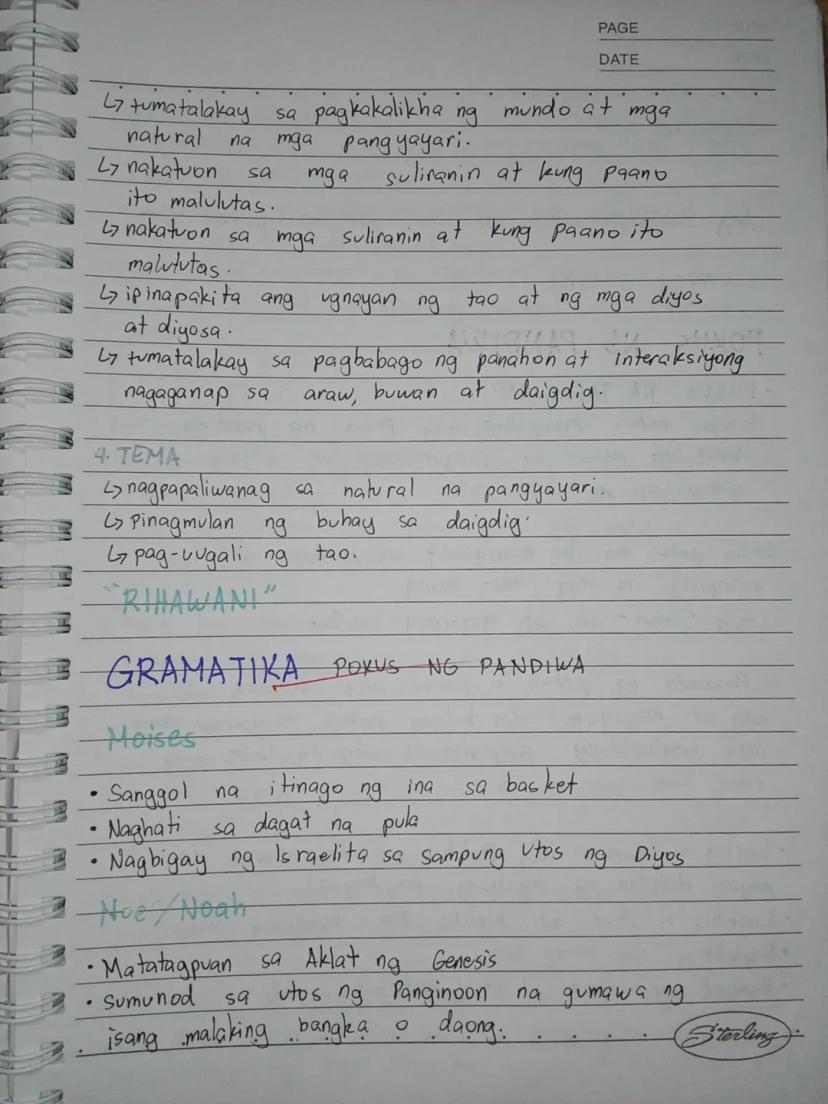 PAGE
DATE
↳ tumatalakay sa pagkakalikha ng mundo at mga
natural na mga pangyayari.
↳ nakatuon sa mga suliranin at kung paano
ito malulutas.
↳ nakatuon sa mga suliranin at kung paano ito
malulutas.
↳ ipinapakita ang ugnayan ng tao at ng mga diyos
at diyosa.
↳ tumatalakay sa pagbabago ng panahon at interaksiyong
nagaganap sa araw, buwan at daigdig.
4. TEMA
↳ nagpapaliwanag sa natural na pangyayari.
↳ pinagmulan ng buhay sa daigdig
↳ pag-uugali ng tao.
"RIHAWANI"
GRAMATIKA POKUS NG PANDIWA
Moises
• Sanggol na itinago ng ina sa basket
• Naghati sa dagat na pula
• Nagbigay ng Israelita sa sampung utos ng Diyos
Noe/Noah
• Matatagpuan sa Aklat ng Genesis
• Sumunod sa utos ng Panginoon na gumawa ng
isang malaking bangka o daong.
Sterling